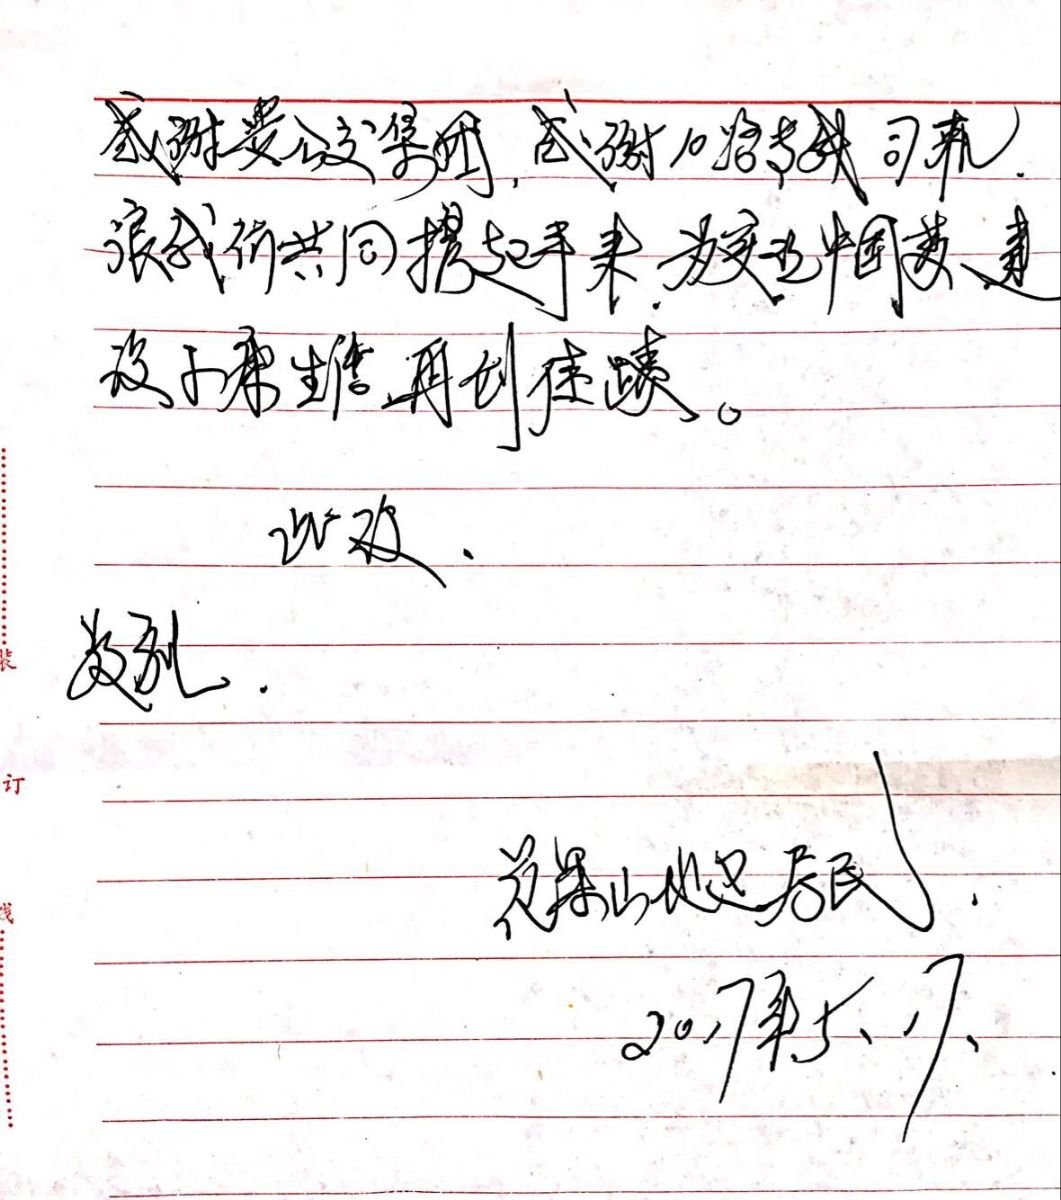 感谢贵公交集团，感谢10路专线司乘.
让我们共同携起手来.为实现中国梦、建
设小康生活 再创佳绩。
此致.
敬礼.
花果山地区居民.
2017年5、17、
装
订
线